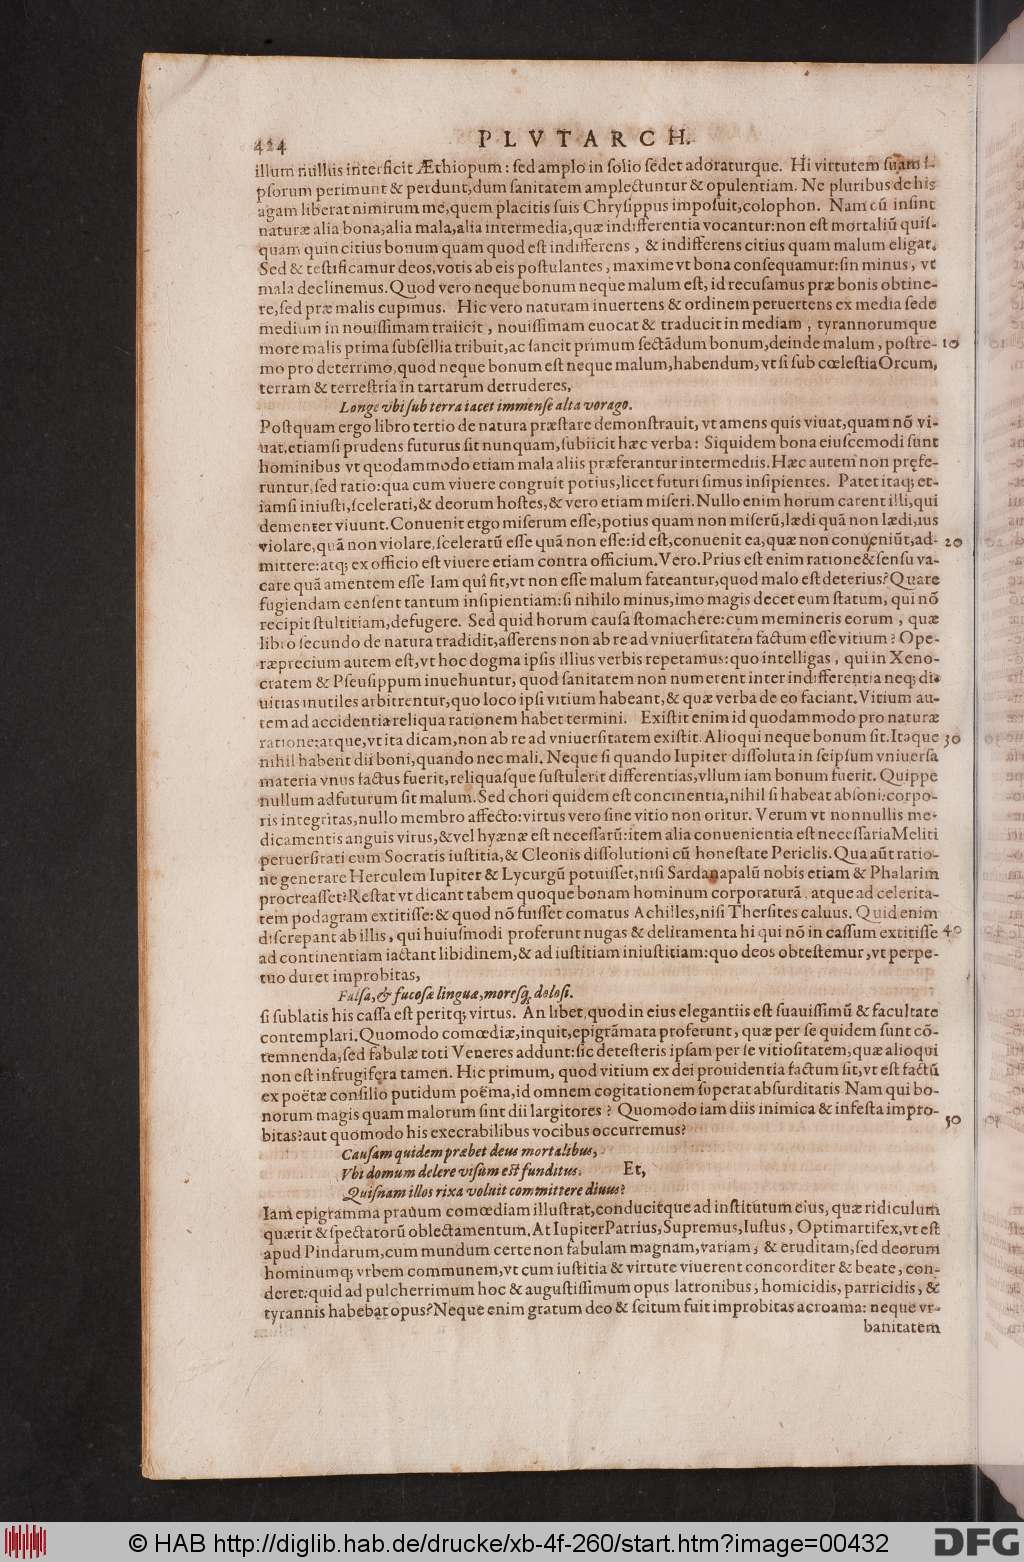 424 PLVTARCH.
illum nullus interficit Æthiopum : sed amplo in solio sedet adoraturque. Hi virtutem suam i-
psorum perimunt & perdunt, dum sanitatem amplectuntur & opulentiam. Ne pluribus de his
agam liberat nimirum me, quem placitis suis Chrysippus imposuit, colophon. Nam cū insint
naturæ alia bona, alia mala, alia intermedia, quæ indifferentia vocantur: non est mortaliū quis-
quam quin citius bonum quam quod est indifferens , & indifferens citius quam malum eligat.
Sed & testificamur deos, votis ab eis postulantes , maxime vt bona consequamur: sin minus , vt
mala declinemus. Quod vero neque bonum neque malum est, id recusamus præ bonis obtine-
re, sed præ malis cupimus. Hic vero naturam inuertens & ordinem peruertens ex media sede
medium in nouissimam traiicit , nouissimam euocat & traducit in mediam , tyrannorumque
more malis prima subsellia tribuit, ac sancit primum sectādum bonum, deinde malum , postre- 10
mo pro deterrimo, quod neque bonum est neque malum, habendum, vt si sub cœlestia Orcum,
terram & terrestria in tartarum detruderes,
Longe vbi sub terra iacet immense alta vorago.
Postquam ergo libro tertio de natura præstare demonstrauit, vt amens quis viuat, quam nō vi-
uat, etiamsi prudens futurus sit nunquam, subiicit hæc verba : Siquidem bona eiuscemodi sunt
hominibus vt quodammodo etiam mala aliis præferantur intermediis. Hæc autem non pręfe-
runtur, sed ratio: qua cum viuere congruit potius, licet futuri simus insipientes. Patet itaq; et-
iamsi iniusti, scelerati, & deorum hostes, & vero etiam miseri. Nullo enim horum carent illi, qui
dementer viuunt. Conuenit ergo miserum esse, potius quam non miserū, lædi quā non lædi, ius
violare, quā non violare, sceleratū esse quā non esse: id est, conuenit ea, quæ non conueniūt, ad- 20
mittere: atq; ex officio est viuere etiam contra officium. Vero. Prius est enim ratione & sensu va-
care quā amentem esse Iam quî sit, vt non esse malum fateantur, quod malo est deterius? Quare
fugiendam censent tantum insipientiam: si nihilo minus, imo magis decet eum statum, qui nō
recipit stultitiam, defugere. Sed quid horum causa stomachere: cum memineris eorum , quæ
libro secundo de natura tradidit, asserens non ab re ad vniuersitatem factum esse vitium ? Ope-
ræprecium autem est, vt hoc dogma ipsis illius verbis repetamus: quo intelligas , qui in Xeno-
cratem & Pseusippum inuehuntur, quod sanitatem non numerent inter indifferentia neq; di-
uitias inutiles arbitrentur, quo loco ipsi vitium habeant, & quæ verba de eo faciant. Vitium au-
tem ad accidentia reliqua rationem habet termini. Existit enim id quodammodo pro naturæ
ratione: atque, vt ita dicam, non ab re ad vniuersitatem existit. Alioqui neque bonum sit. Itaque 30
nihil habent dii boni, quando nec mali. Neque si quando Iupiter dissoluta in seipsum vniuersa
materia vnus factus fuerit, reliquasque sustulerit differentias, vllum iam bonum fuerit. Quippe
nullum adfuturum sit malum. Sed chori quidem est concinentia, nihil si habeat absoni: corpo-
ris integritas, nullo membro affecto: virtus vero sine vitio non oritur. Verum vt nonnullis me-
dicamentis anguis virus, & vel hyænæ est necessarū: item alia conuenientia est necessaria Meliti
peruersitati cum Socratis iustitia, & Cleonis dissolutioni cū honestate Periclis. Qua aūt ratio-
ne generare Herculem Iupiter & Lycurgū potuisset, nisi Sardanapalū nobis etiam & Phalarim
procreasset? Restat vt dicant tabem quoque bonam hominum corporaturā, atque ad celerita-
tem podagram extitisse: & quod nō fuisset comatus Achilles, nisi Thersites caluus. Quid enim
discrepant ab illis , qui huiusmodi proferunt nugas & deliramenta hi qui nō in cassum extitisse 40
ad continentiam iactant libidinem, & ad iustitiam iniustitiam: quo deos obtestemur , vt perpe-
tuo duret improbitas,
Falsa, & fucosæ linguæ, moresq; dolosi.
si sublatis his cassa est peritq; virtus. An libet, quod in eius elegantiis est suauissimū & facultate
contemplari. Quomodo comœdiæ, inquit, epigrāmata proferunt , quæ per se quidem sunt cō-
temnenda, sed fabulæ toti Veneres addunt: sic detesteris ipsam per se vitiositatem, quæ alioqui
non est infrugifera tamen. Hic primum, quod vitium ex dei prouidentia factum sit, vt est factū
ex poëtæ consilio putidum poëma, id omnem cogitationem superat absurditatis Nam qui bo-
norum magis quam malorum sint dii largitores ? Quomodo iam diis inimica & infesta impro-
bitas? aut quomodo his execrabilibus vocibus occurremus? 50
Causam quidem præbet deus mortalibus,
Vbi domum delere visum est funditus. Et,
Quisnam illos rixa voluit committere diuus?
Iam epigramma prauum comœdiam illustrat, conducitque ad institutum eius, quæ ridiculum
quærit & spectatorū oblectamentum. At Iupiter Patrius, Supremus, Iustus , Optimartifex, vt est
apud Pindarum, cum mundum certe non fabulam magnam, variam , & eruditam, sed deorum
hominumq; vrbem communem, vt cum iustitia & virtute viuerent concorditer & beate , con-
deret: quid ad pulcherrimum hoc & augustissimum opus latronibus , homicidis, parricidis, &
tyrannis habebat opus? Neque enim gratum deo & scitum fuit improbitas acroama: neque vr-
banitatem
© HAB http://diglib.hab.de/drucke/xb-4f-260/start.htm?image=00432
DFG